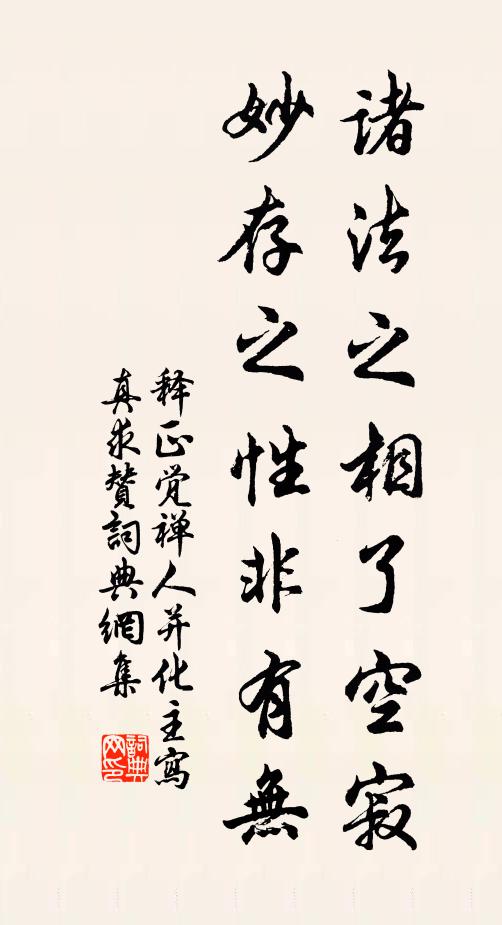 諸法之相了空寂
妙存之性非有無
释正觉禅人并化主寫
真求赞詞典網集
詞典网印